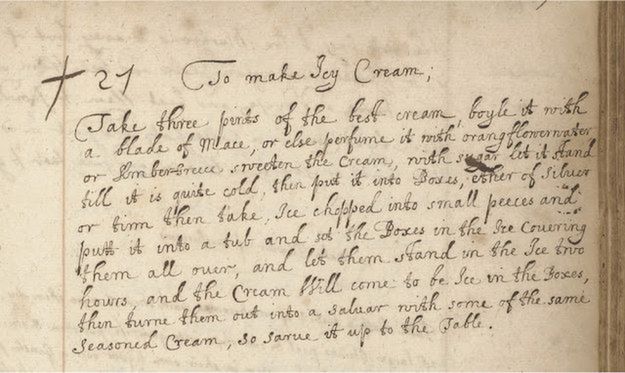 27 To make Icy Cream;
Take three pints of the best cream, boyle it with
a blade of Mace, or else perfume it with orangflowerwater
or Ambergreece sweeten the Cream, with sugar let it stand
till it is quite cold, then put it into Boxes, either of Silver
or tinn then take, Ice chopped into small peeces and
putt it into a tub and set the Boxes in the Ice Covering
them all over, and let them stand in the Ice two
hours, and the Cream Will come to be Ice in the Boxes,
then turne them out into a salvar with some of the same
Seasoned Cream, so sarve it up to the Table.